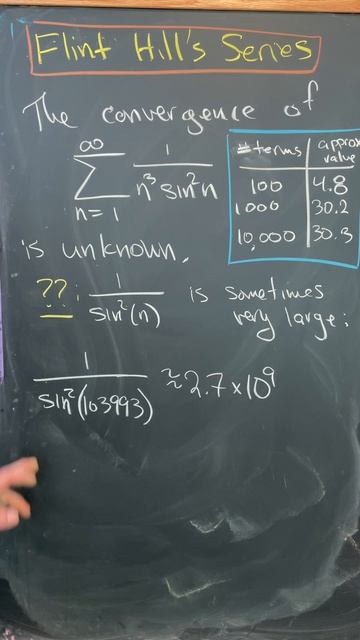 Flint Hill's Series
The convergence of
∞
∑ 1/(n³ sin² n)
n=1
# terms | approx value
100 | 4.8
1000 | 30.2
10,000 | 30.3
is unknown.
??: 1/sin²(n) is sometimes
very large:
1/sin²(103993) ≈ 2.7 × 10⁹